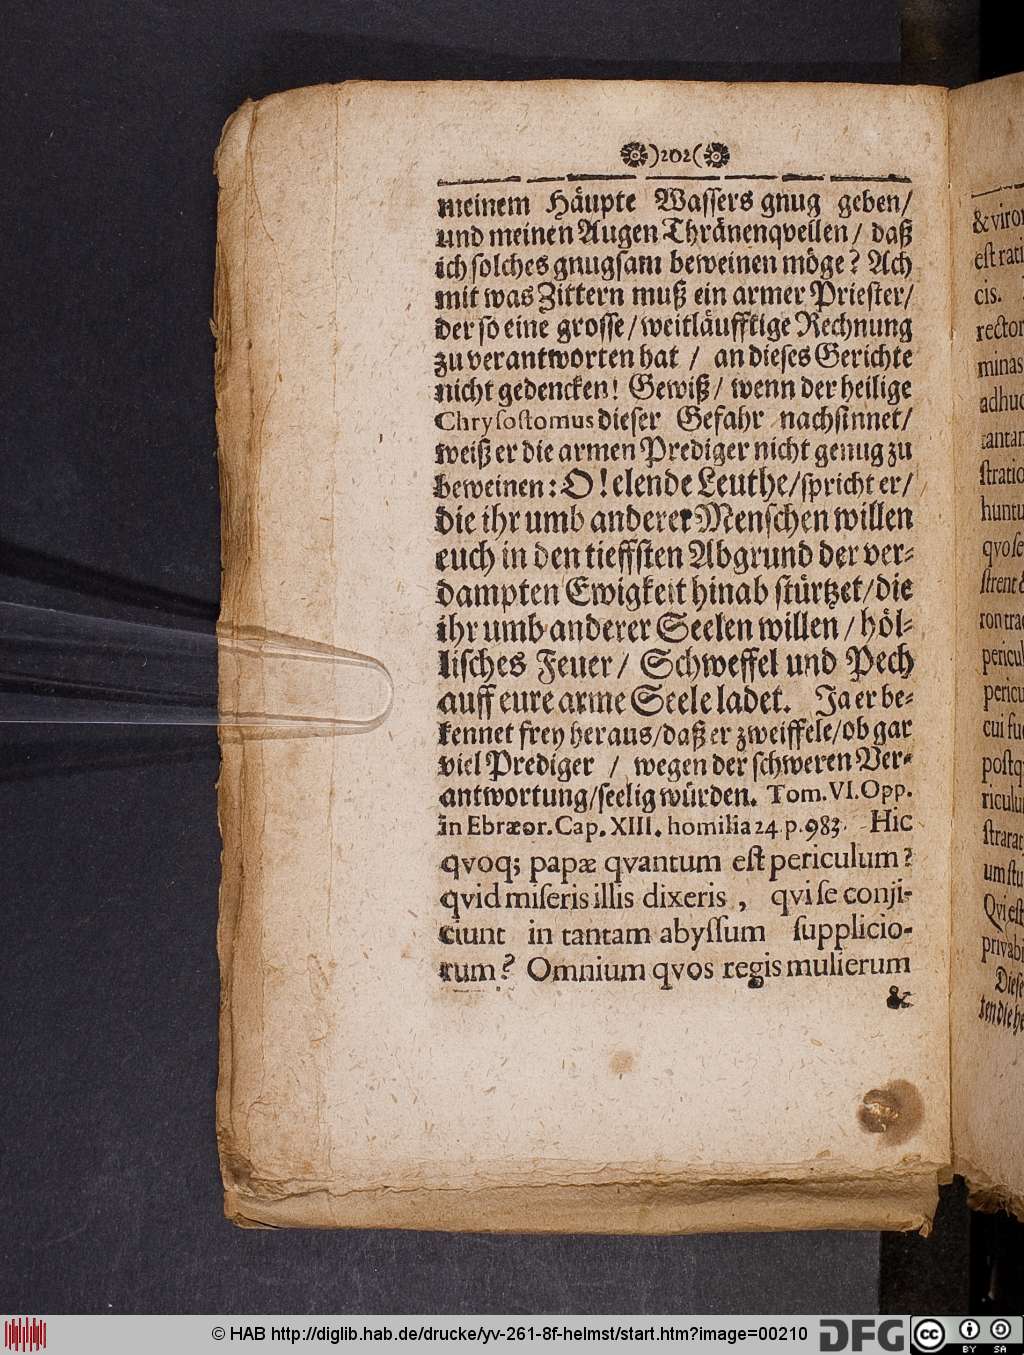 )202(
meinem Häupte Wassers gnug geben/
und meinen Augen Thränenqvellen / daß
ich solches gnugsam beweinen möge? Ach
mit was Zittern muß ein armer Priester/
der so eine grosse/weitläufftige Rechnung
zu verantworten hat / an dieses Gerichte
nicht gedencken! Gewiß/ wenn der heilige
Chrysostomus dieser Gefahr nachsinnet/
weiß er die armen Prediger nicht genug zu
beweinen: O! elende Leuthe/spricht er/
die ihr umb anderer Menschen willen
euch in den tieffsten Abgrund der ver-
dampten Ewigkeit hinab stürtzet/die
ihr umb anderer Seelen willen / höl-
lisches Feuer/ Schweffel und Pech
auff eure arme Seele ladet. Ja er be-
kennet frey heraus/daß er zweiffele/ob gar
viel Prediger / wegen der schweren Ver-
antwortung/seelig würden. Tom. VI. Opp.
in Ebræor. Cap. XIII. homilia 24 p. 983. Hic
qvoq; papæ qvantum est periculum?
qvid miseris illis dixeris, qvi se conji-
ciunt in tantam abyssum supplicio-
rum? Omnium qvos regis mulierum
&
& viror
est rati
cis.
rector
minas
adhuc
tantam
stratio
huntu
qvo se
strent &
ron trad
pericul
pericu
cui fue
postq
riculu
strarat
um stu
Qvi est
privabi
Diese
ten die he
© HAB http://diglib.hab.de/drucke/yv-261-8f-helmst/start.htm?image=00210
DFG
cc BY SA